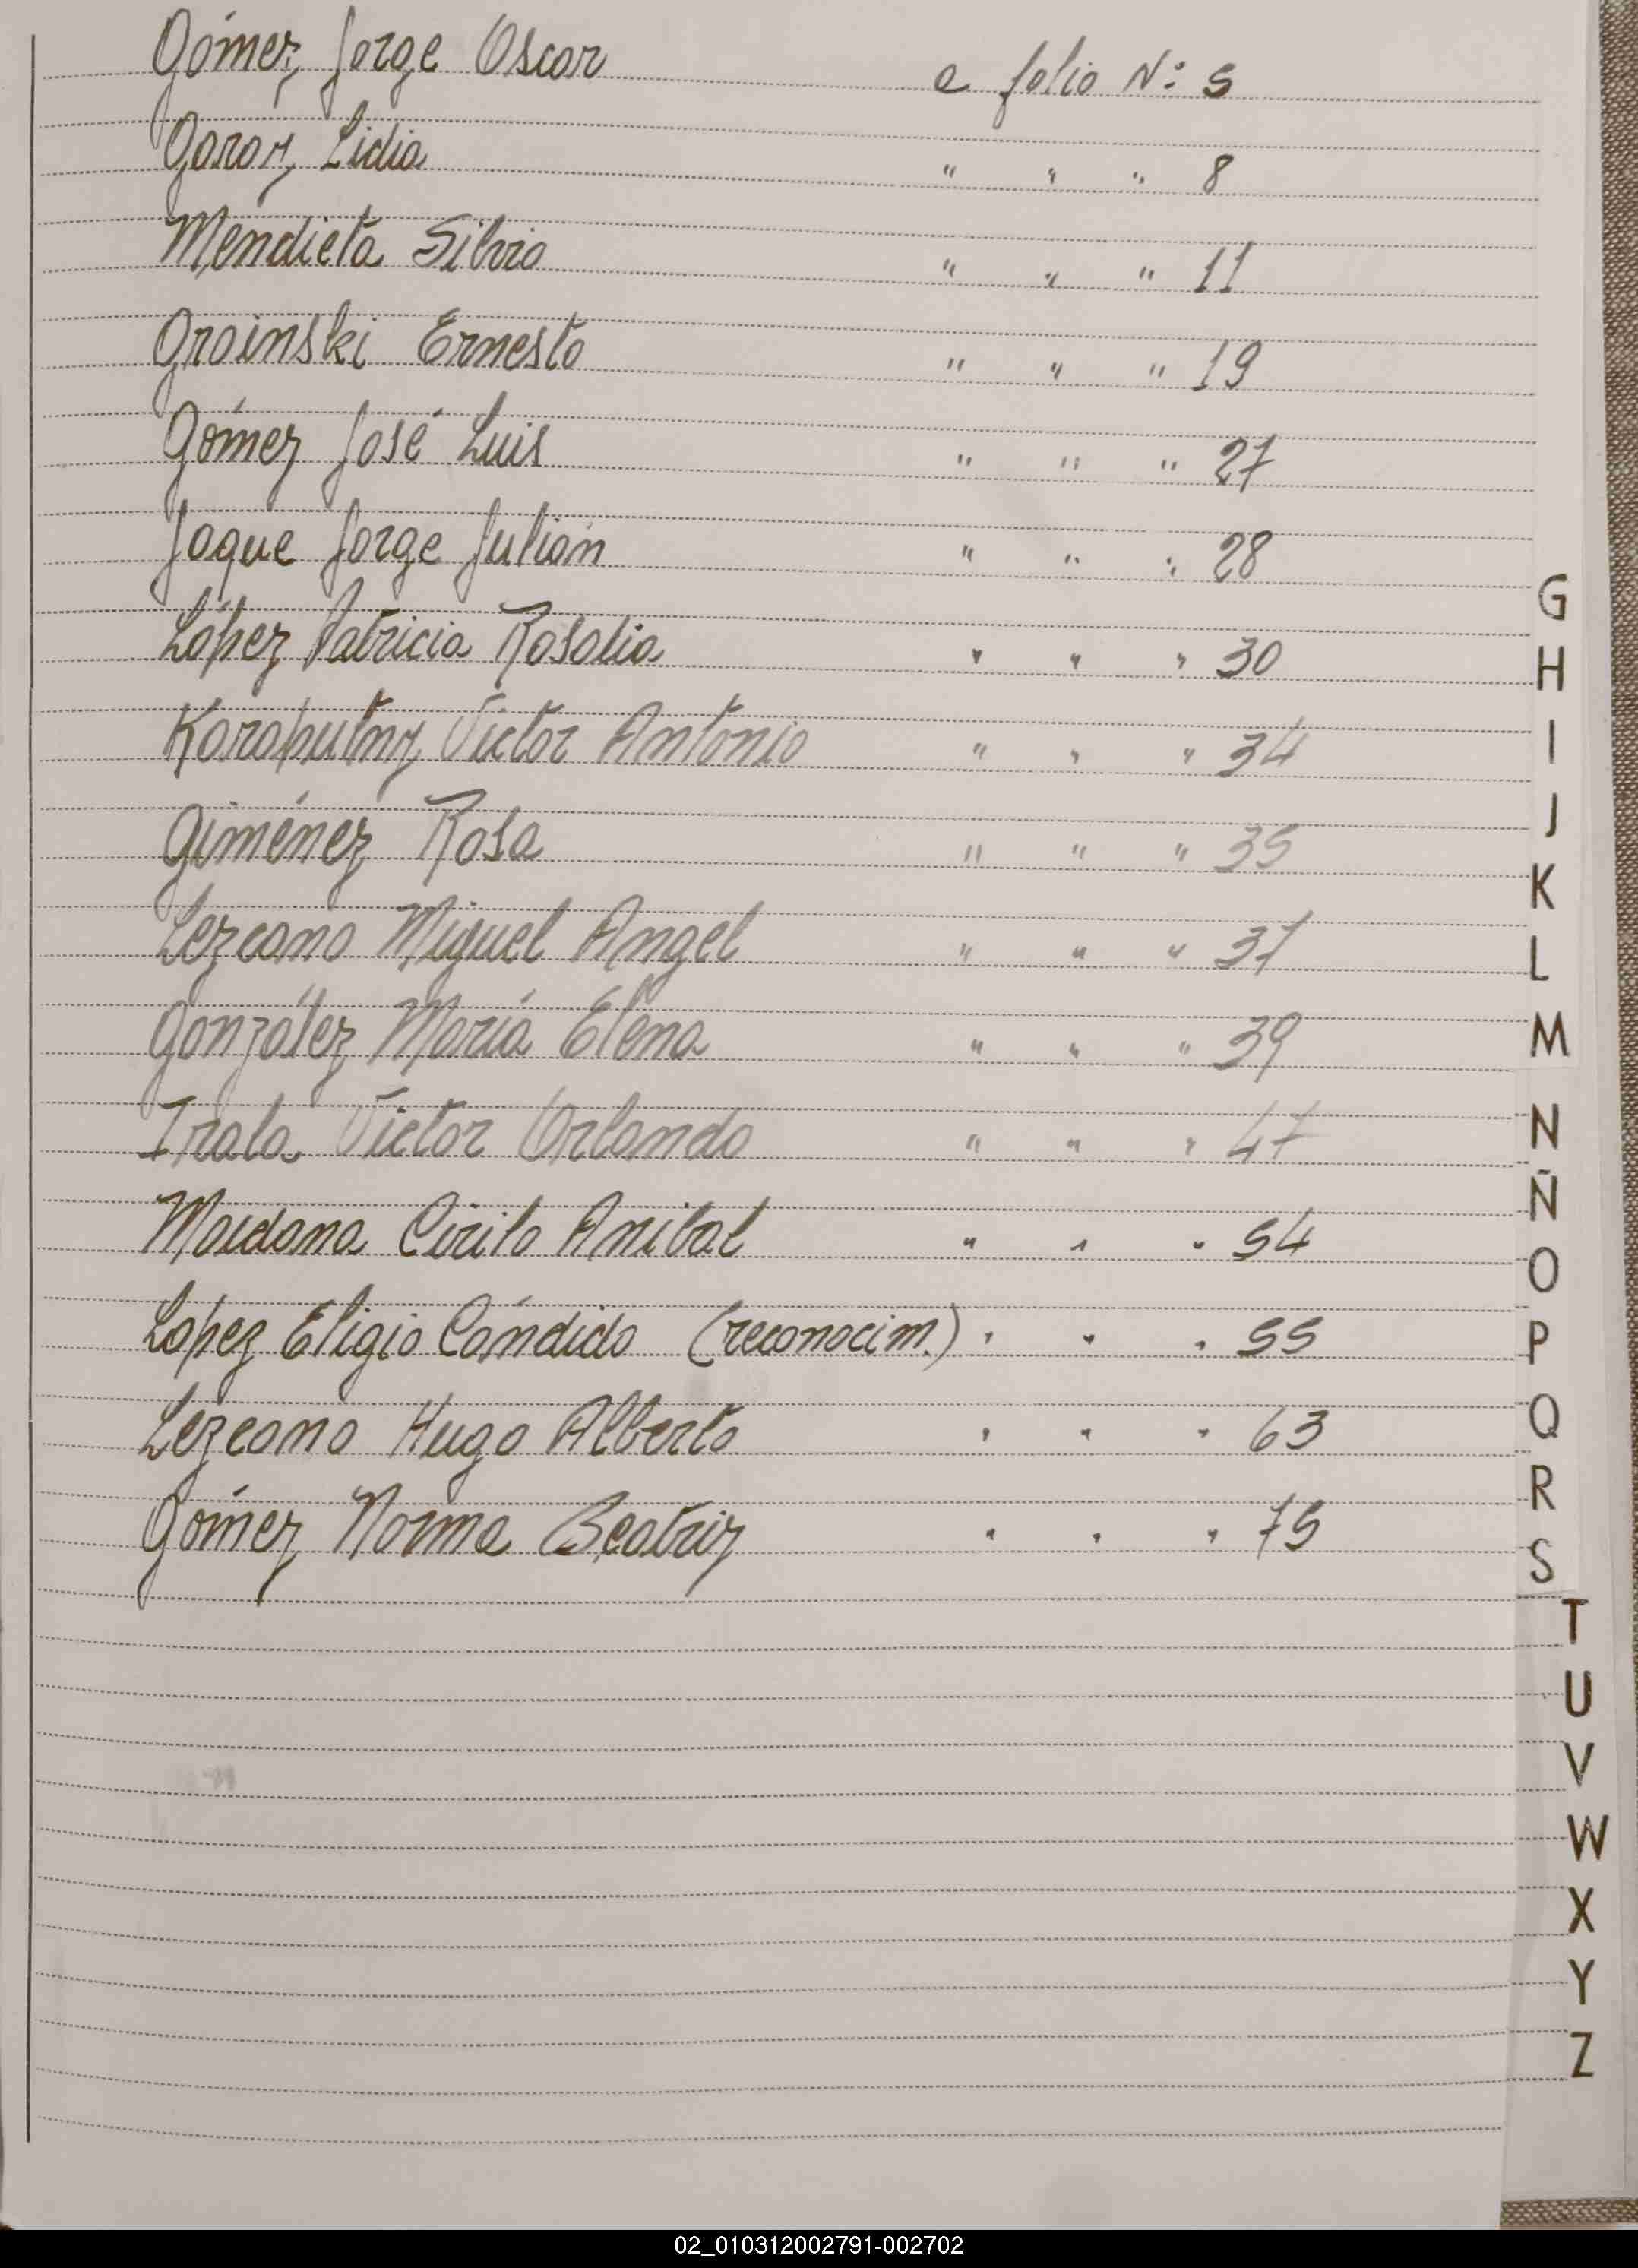 Gómez, Jorge Oscar a folio Nº: 5
Garay, Lidia " " " 8
Mendieta Silvio " " " 11
Groinski Ernesto " " " 19
Gómez José Luis " " " 27
Jaque Jorge Julián " " " 28
López Patricia Rosalia " " " 30
Koroputny Victor Antonio " " " 34
Giménez Rosa " " " 35
Lezcano Miguel Angel " " " 37
González María Elena " " " 39
Irala Victor Orlando " " " 47
Maidana Cirilo Anibal " " " 54
López Eligio Cándido (reconocim.) " " " 55
Lezcano Hugo Alberto " " " 63
Gómez Norma Beatriz " " " 75
G
H
I
J
K
L
M
N
Ñ
O
P
Q
R
S
T
U
V
W
X
Y
Z
02_010312002791-002702